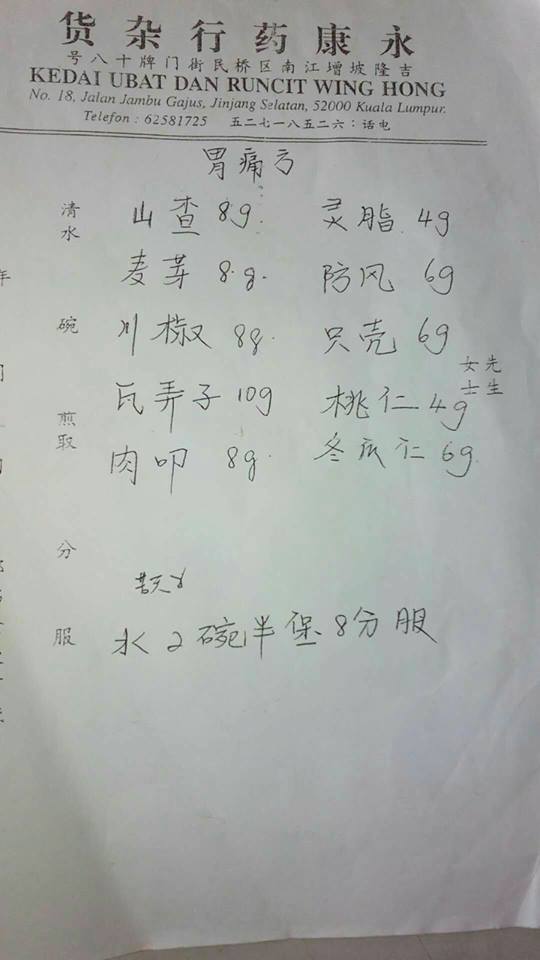 永康药行杂货
吉隆坡增江南区桥民街门牌十八号
KEDAI UBAT DAN RUNCIT WING HONG
No. 18, Jalan Jambu Gajus, Jinjang Selatan, 52000 Kuala Lumpur.
Telefon : 62581725 电话：六二五八一七二五
胃痛方
先生
女士
山查 8g. 灵脂 4g
麦芽 8.g. 防风 6g
川椒 8g. 只壳 6g
瓦弄子 10g 桃仁 4g
肉叩 8g. 冬瓜仁 6g
水2碗半堡8分服
清水
碗
煎取
分
服